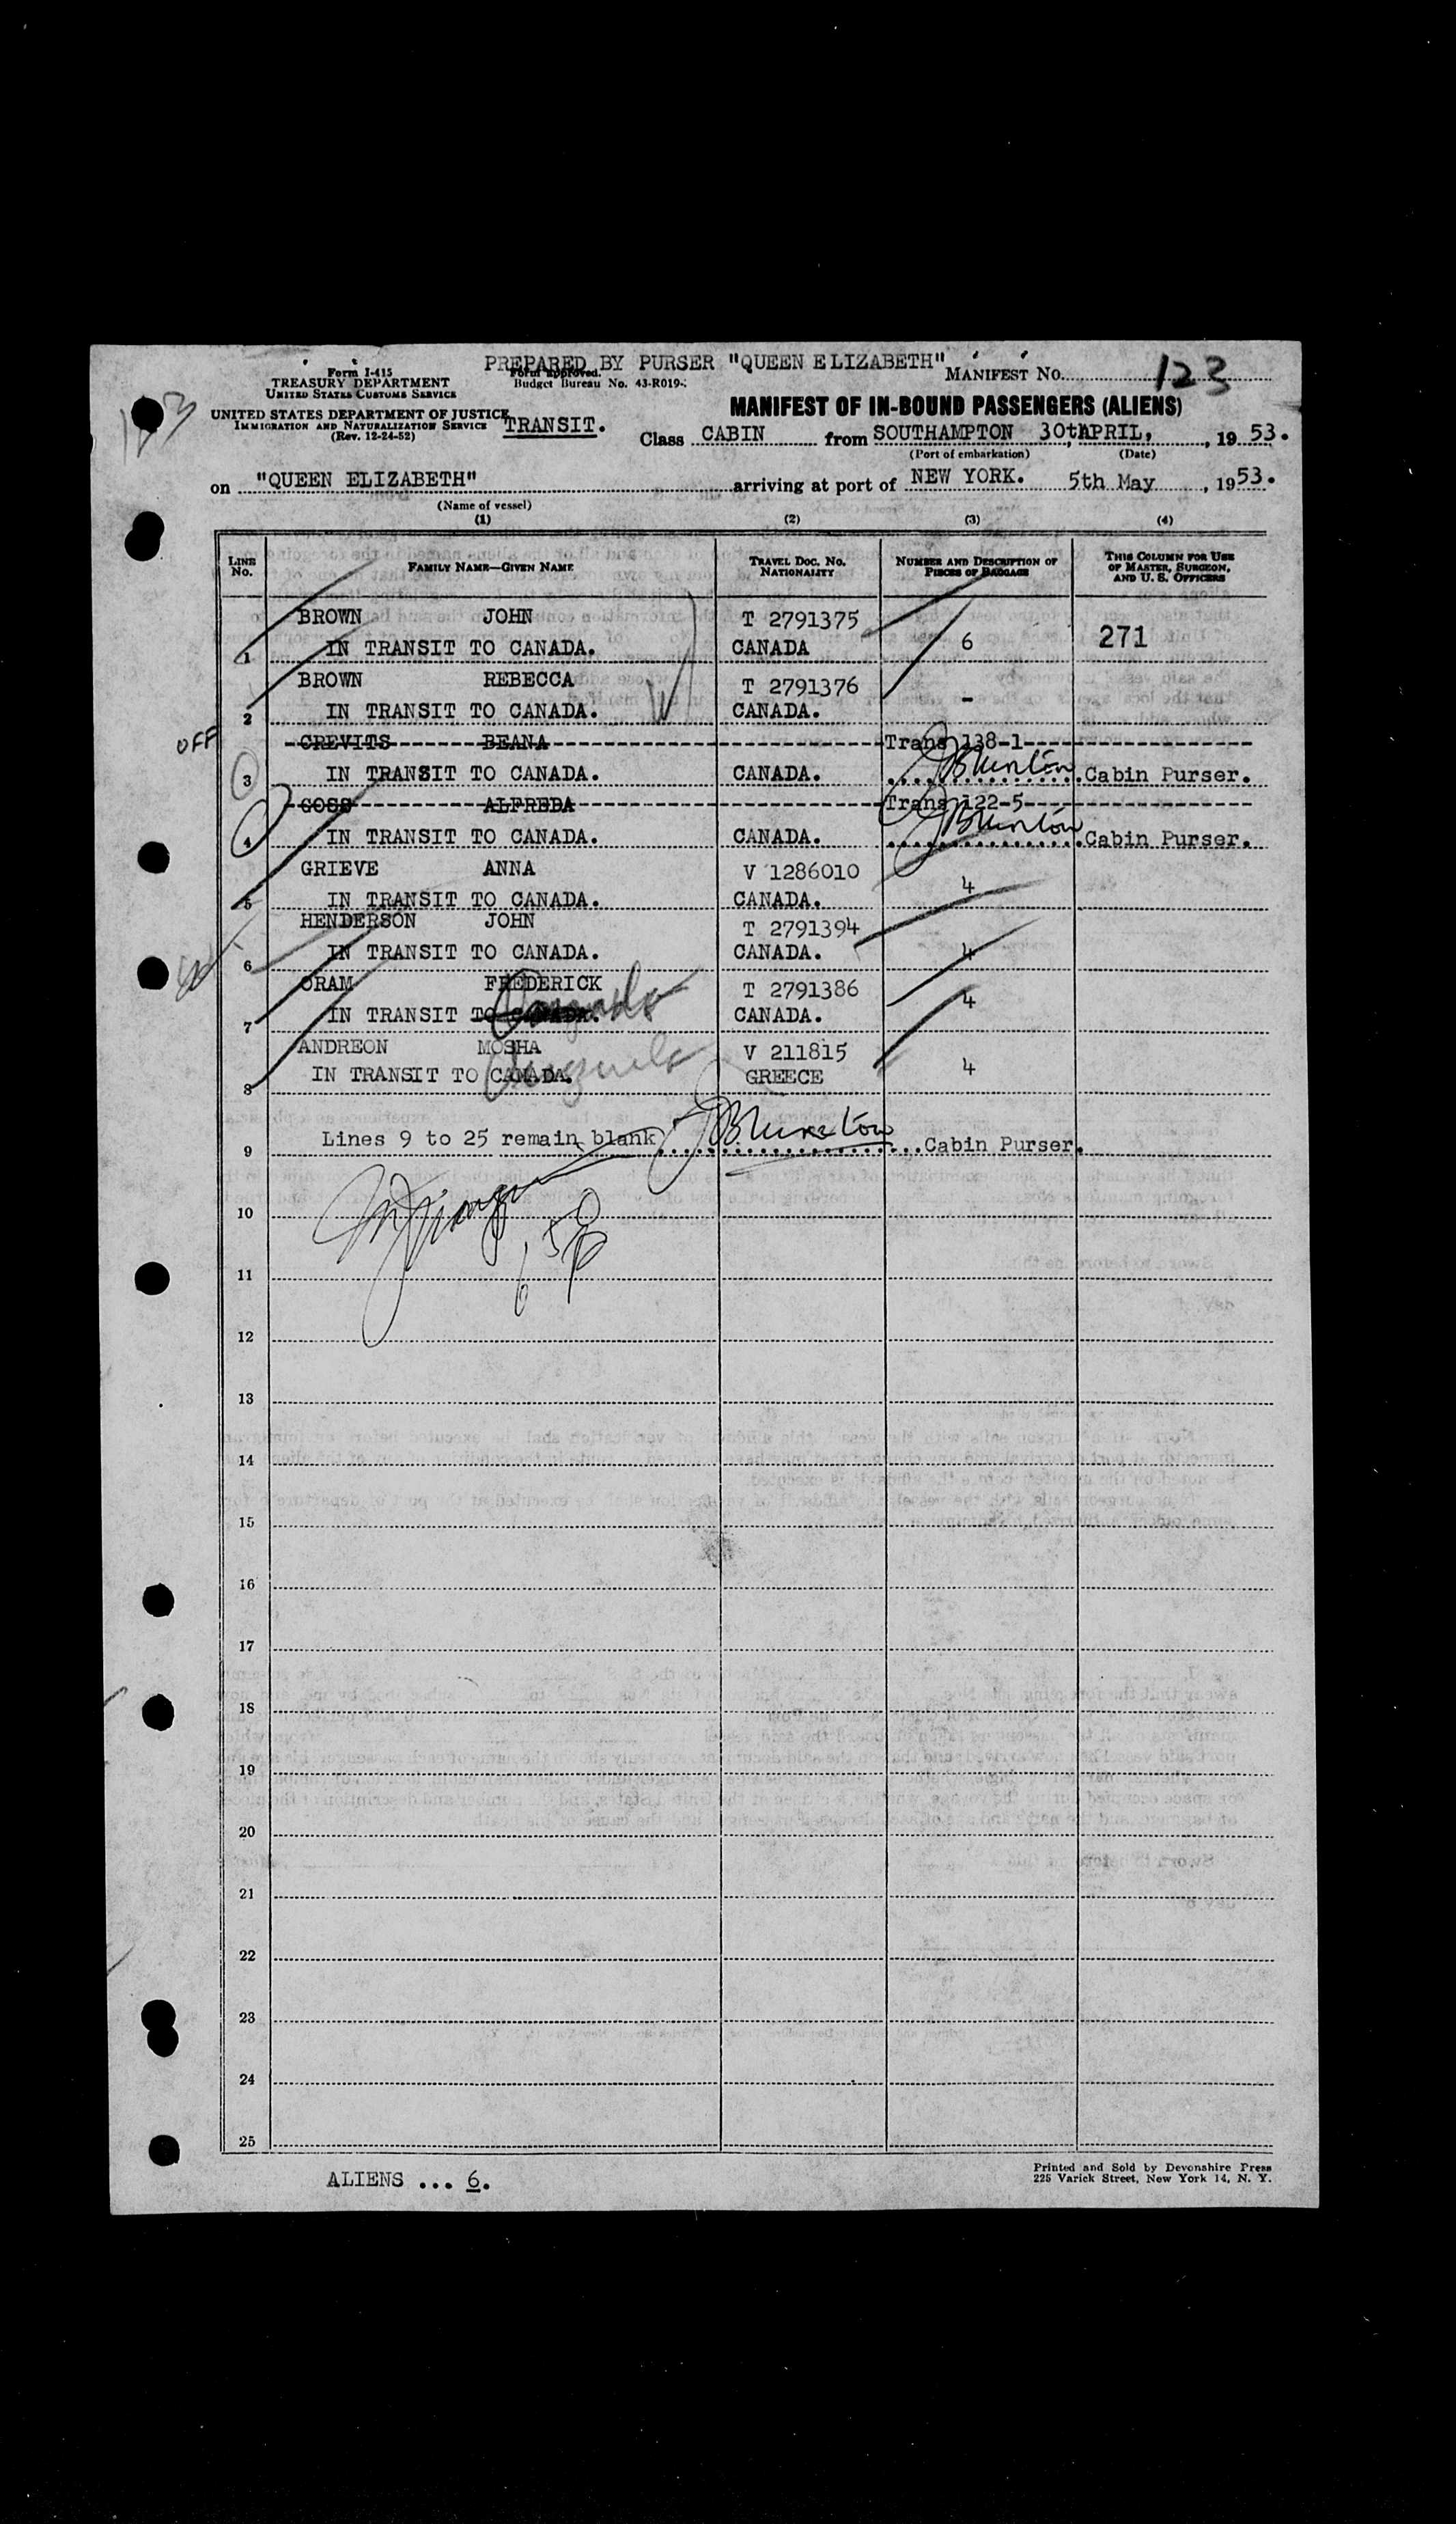 PREPARED BY PURSER "QUEEN ELIZABETH"
Form I-415
TREASURY DEPARTMENT
UNITED STATES CUSTOMS SERVICE
Form approved.
Budget Bureau No. 43-R019-
MANIFEST NO. 123
UNITED STATES DEPARTMENT OF JUSTICE
IMMIGRATION AND NATURALIZATION SERVICE
(Rev. 12-24-52)
TRANSIT.
MANIFEST OF IN-BOUND PASSENGERS (ALIENS)
Class CABIN from SOUTHAMPTON 30th APRIL, , 19 53.
(Port of embarkation) (Date)
on "QUEEN ELIZABETH" arriving at port of NEW YORK. 5th May , 19 53.
(Name of vessel)
(1) (2) (3) (4)
LINE NO. FAMILY NAME—GIVEN NAME TRAVEL DOC. NO. NATIONALITY NUMBER AND DESCRIPTION OF PIECES OF BAGGAGE THIS COLUMN FOR USE OF MASTER, SURGEON, AND U. S. OFFICERS
BROWN JOHN T 2791375
1 IN TRANSIT TO CANADA. CANADA 6 271
BROWN REBECCA T 2791376
2 IN TRANSIT TO CANADA. CANADA. -
OFF CREVITS BEANA Trans 138-1
3 IN TRANSIT TO CANADA. CANADA. Cabin Purser.
GOSS ALFREDA Trans 122-5
4 IN TRANSIT TO CANADA. CANADA. Cabin Purser.
GRIEVE ANNA V 1286010
5 IN TRANSIT TO CANADA. CANADA. 4
HENDERSON JOHN T 2791394
6 IN TRANSIT TO CANADA. CANADA. 4
ORAM FREDERICK T 2791386
7 IN TRANSIT TO CANADA. CANADA. 4
ANDREON MOSHA V 211815
8 IN TRANSIT TO CANADA. GREECE 4
9 Lines 9 to 25 remain blank Cabin Purser.
10
11
12
13
14
15
16
17
18
19
20
21
22
23
24
25
ALIENS ... 6.
Printed and Sold by Devonshire Press
225 Varick Street, New York 14, N. Y.